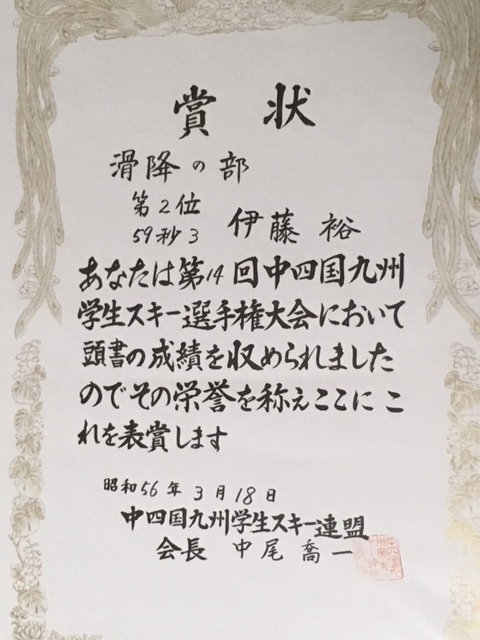 賞状
滑降の部
第2位
59秒3
伊藤 裕
あなたは第14回中四国九州
学生スキー選手権大会において
頭書の成績を収められました
のでその栄誉を称えここにこ
れを表賞します
昭和56年3月18日
中四国九州学生スキー連盟
会長 中尾喬一